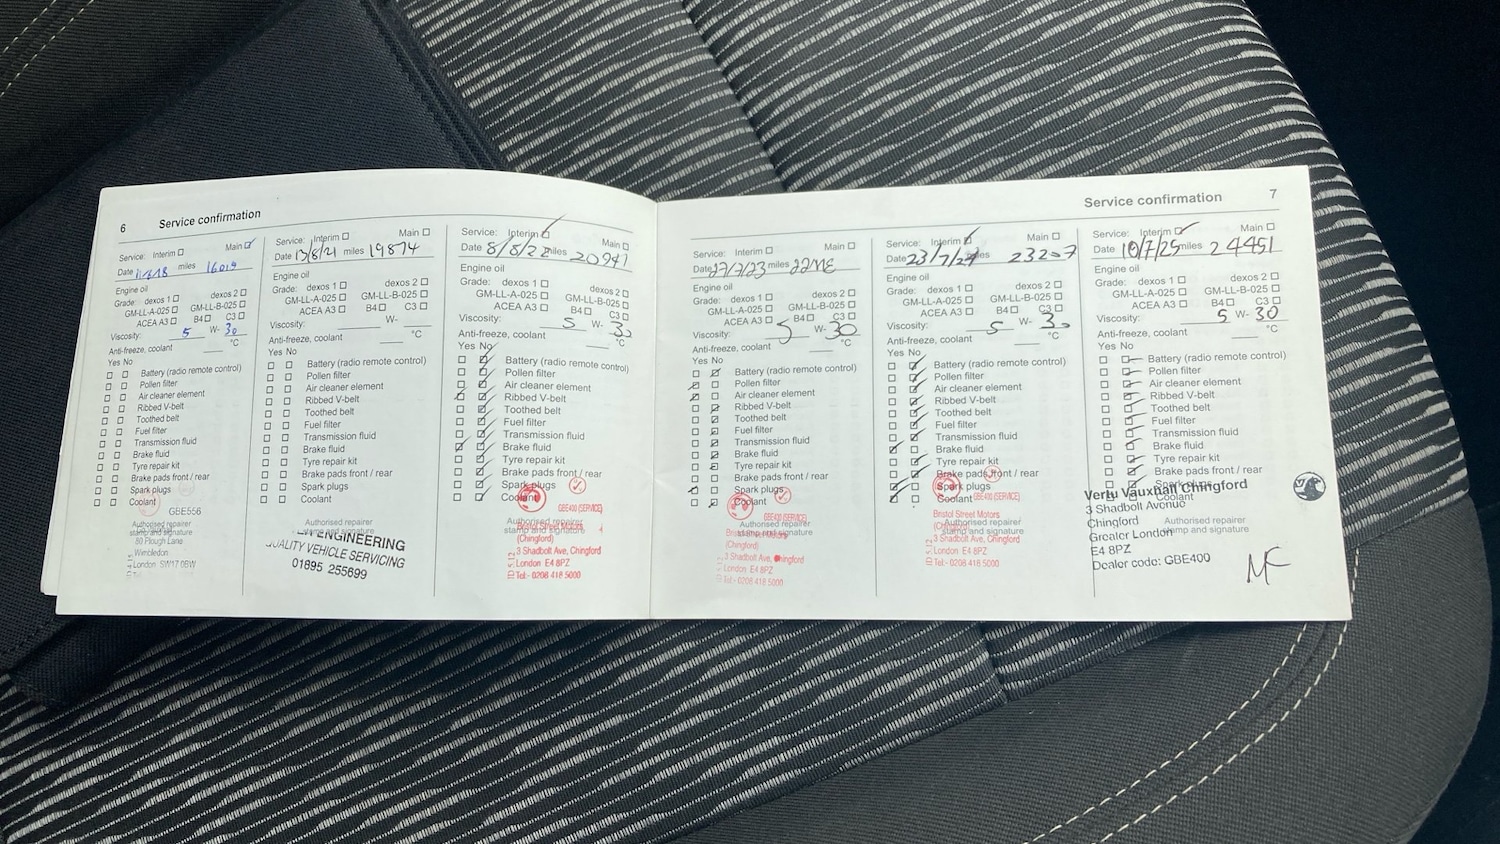 6 Service confirmation
Service: Interim Main
Date 11/6/18 miles 16019
Engine oil
Grade: dexos 1 dexos 2
GM-LL-A-025 GM-LL-B-025
ACEA A3 B4 C3
Viscosity: 5 W- 30
Anti-freeze, coolant °C
Yes No
Battery (radio remote control)
Pollen filter
Air cleaner element
Ribbed V-belt
Toothed belt
Fuel filter
Transmission fluid
Brake fluid
Tyre repair kit
Brake pads front / rear
Spark plugs
Coolant
GBE556
Authorised repairer
stamp and signature
80 Plough Lane
Wimbledon
London SW17 0BW
Service: Interim Main
Date 13/8/21 miles 19874
Engine oil
Grade: dexos 1 dexos 2
GM-LL-A-025 GM-LL-B-025
ACEA A3 B4 C3
Viscosity: W-
Anti-freeze, coolant °C
Yes No
Battery (radio remote control)
Pollen filter
Air cleaner element
Ribbed V-belt
Toothed belt
Fuel filter
Transmission fluid
Brake fluid
Tyre repair kit
Brake pads front / rear
Spark plugs
Coolant
Authorised repairer
stamp and signature
ENGINEERING
QUALITY VEHICLE SERVICING
01895 255699
Service: Interim Main
Date 8/8/22 miles 20941
Engine oil
Grade: dexos 1 dexos 2
GM-LL-A-025 GM-LL-B-025
ACEA A3 B4 C3
Viscosity: 5 W- 30
Anti-freeze, coolant °C
Yes No
Battery (radio remote control)
Pollen filter
Air cleaner element
Ribbed V-belt
Toothed belt
Fuel filter
Transmission fluid
Brake fluid
Tyre repair kit
Brake pads front / rear
Spark plugs
Coolant
GBE400 (SERVICE)
Authorised repairer
stamp and signature
Bristol Street Motors
(Chingford)
3 Shadbolt Ave, Chingford
London E4 8PZ
Tel:- 0208 418 5000
Service confirmation 7
Service: Interim Main
Date 27/7/23 miles
Engine oil
Grade: dexos 1 dexos 2
GM-LL-A-025 GM-LL-B-025
ACEA A3 B4 C3
Viscosity: 5 W- 30
Anti-freeze, coolant °C
Yes No
Battery (radio remote control)
Pollen filter
Air cleaner element
Ribbed V-belt
Toothed belt
Fuel filter
Transmission fluid
Brake fluid
Tyre repair kit
Brake pads front / rear
Spark plugs
Coolant
GBE400 (SERVICE)
Authorised repairer
stamp and signature
Bristol Street Motors
(Chingford)
3 Shadbolt Ave, Chingford
London E4 8PZ
Tel:- 0208 418 5000
Service: Interim Main
Date 23/7/24 miles 23207
Engine oil
Grade: dexos 1 dexos 2
GM-LL-A-025 GM-LL-B-025
ACEA A3 B4 C3
Viscosity: 5 W- 30
Anti-freeze, coolant °C
Yes No
Battery (radio remote control)
Pollen filter
Air cleaner element
Ribbed V-belt
Toothed belt
Fuel filter
Transmission fluid
Brake fluid
Tyre repair kit
Brake pads front / rear
Spark plugs
Coolant
GBE400 (SERVICE)
Authorised repairer
stamp and signature
Bristol Street Motors
(Chingford)
3 Shadbolt Ave, Chingford
London E4 8PZ
Tel:- 0208 418 5000
Service: Interim Main
Date 10/7/25 miles 24451
Engine oil
Grade: dexos 1 dexos 2
GM-LL-A-025 GM-LL-B-025
ACEA A3 B4 C3
Viscosity: 5 W- 30
Anti-freeze, coolant °C
Yes No
Battery (radio remote control)
Pollen filter
Air cleaner element
Ribbed V-belt
Toothed belt
Fuel filter
Transmission fluid
Brake fluid
Tyre repair kit
Brake pads front / rear
Spark plugs
Coolant
Vertu Vauxhall Chingford
3 Shadbolt Avenue
Chingford
Greater London
E4 8PZ
Dealer code: GBE400
Authorised repairer
stamp and signature
MF